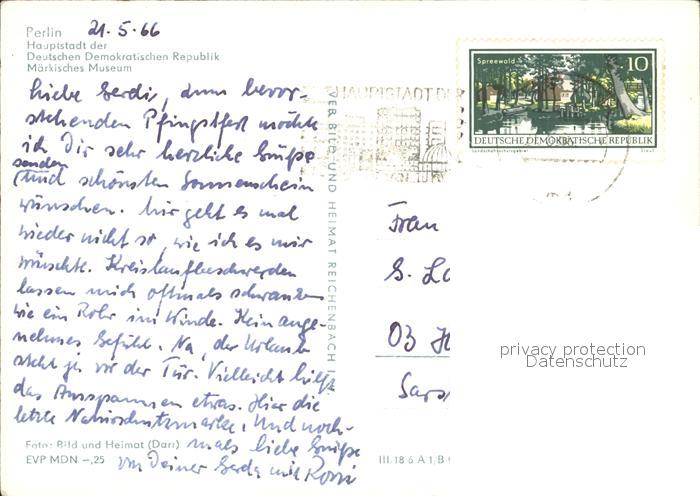 Berlin 21.5.66
Hauptstadt der
Deutschen Demokratischen Republik
Märkisches Museum
Liebe Gerdi, zum bevor-
stehenden Pfingstfest möchte
ich Dir sehr herzliche Grüße
senden
und schönsten Sonnenschein
wünschen. Mir geht es mal
wieder nicht so, wie ich es mir
wünschte. Kreislaufbeschwerden
lassen mich oftmals schwanken
wie ein Rohr im Winde. Kein ange-
nehmes Gefühl. Na, der Urlaub
steht ja vor der Tür. Vielleicht hilft
das Ausspannen etwas. Hier die
letzte Naturschutzmarke. Und noch-
mals liebe Grüße
von Deiner Gerda mit Rosi
Foto: Bild und Heimat (Darr)
EVP MDN –,25
VEB BILD UND HEIMAT REICHENBACH I. V.
HAUPTSTADT DER
Spreewald
10
DEUTSCHE DEMOKRATISCHE REPUBLIK
Landschaftsschutzgebiet
Frau
G. La
03 H
Sars
III.18 6 A 1/B
privacy protection
Datenschutz